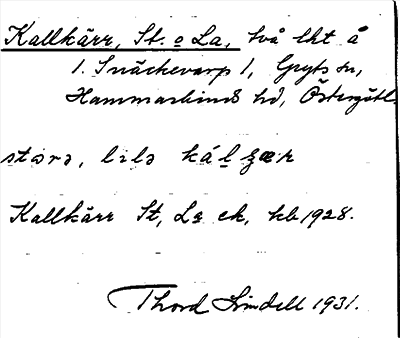 Kallkärr, St. o La, två lht å
1. Snäckevarp 1, Gryts sn,
Hammarkinds hd, Östergötl.
Kallkärr St, La ek, kb 1928.
Thord Lindell 1931.